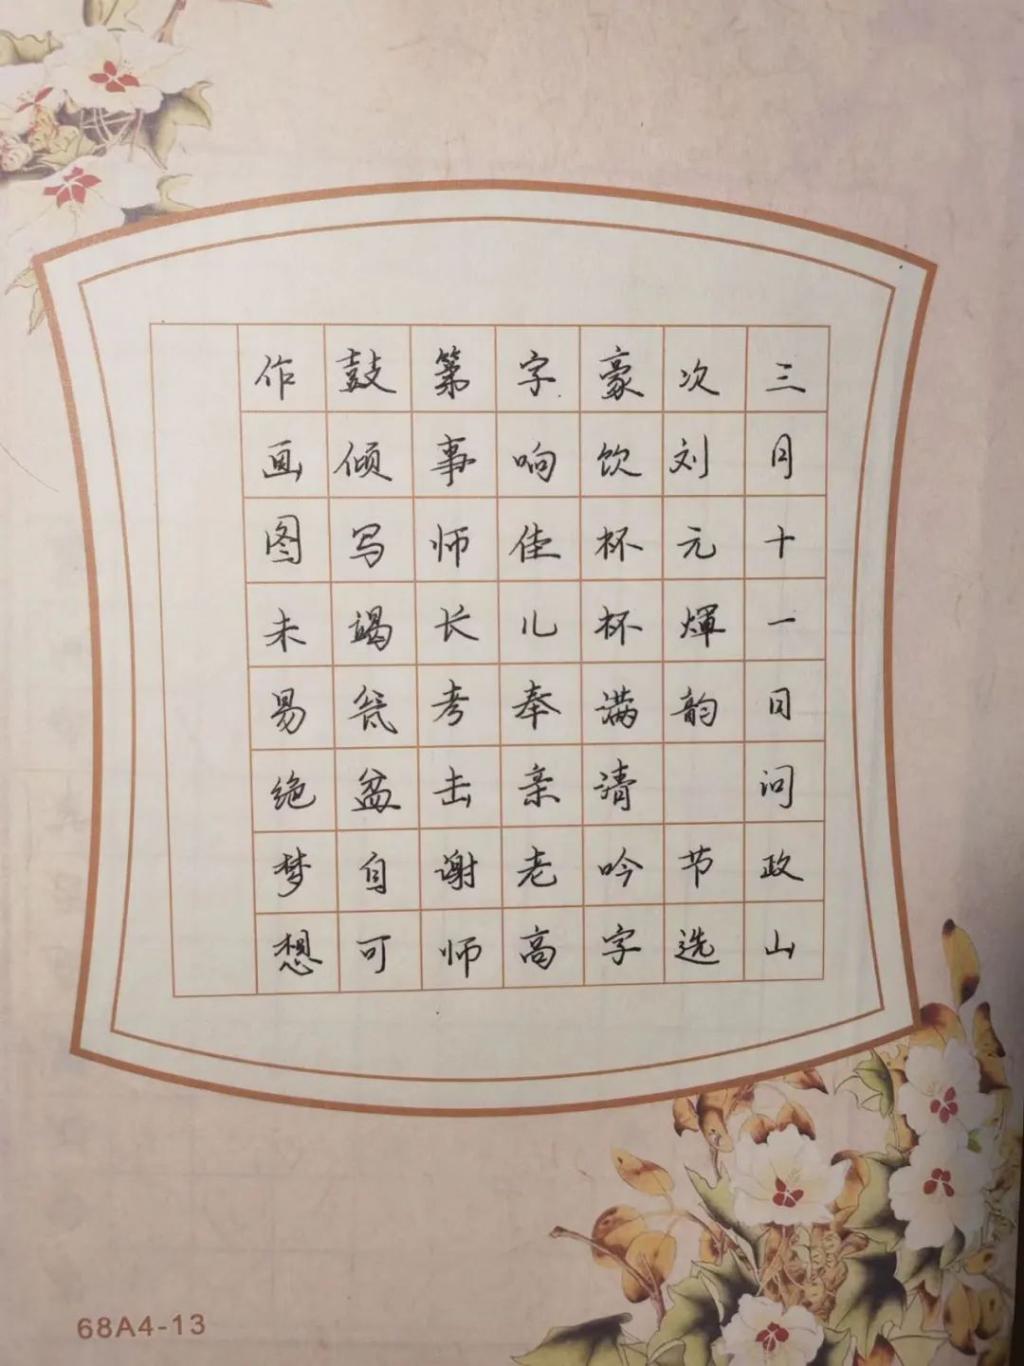 三月十一日问政山
次刘元煇韵 节选
豪饮杯杯满请吟字
字响佳儿奉亲老高
第事师长考击谢师
鼓倾写竭瓮盆自可
作画图未易绝梦想
68A4-13